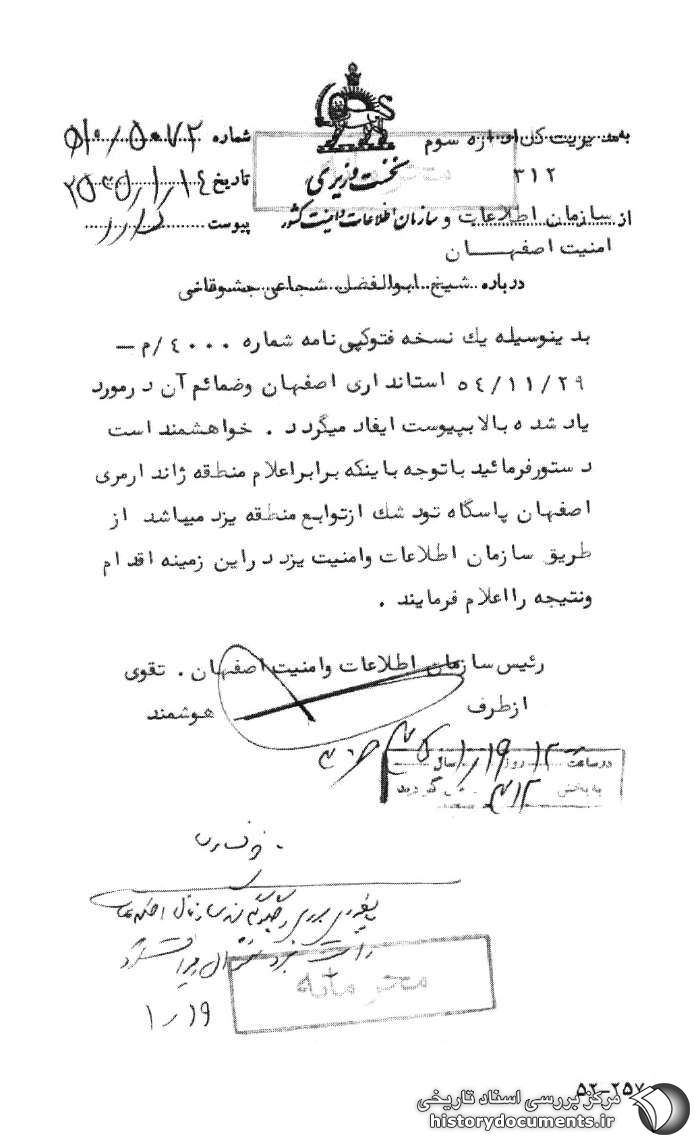 به مدیریت کل اداره سوم
۳۱۲
نخست وزیری
سازمان اطلاعات و امنیت کشور
شماره ۵۰۷۲/۵۱۰
تاریخ ۲۵۳۵/۱/۱۴
پیوست دارد
از سازمان اطلاعات و
امنیت اصفهان
درباره شیخ ابوالفضل شجاعی جشوقانی
بدینوسیله یک نسخه فتوکپی نامه شماره ۴۰۰۰/م -
۵۴/۱۱/۲۹ استانداری اصفهان وضمائم آن درمورد
یاد شده بالا بپیوست ایفاد میگردد . خواهشمند است
دستورفرمائید باتوجه باینکه برابراعلام منطقه ژاندارمری
اصفهان پاسگاه تودشک ازتوابع منطقه یزد میباشد از
طریق سازمان اطلاعات وامنیت یزد دراین زمینه اقدام
ونتیجه رااعلام فرمایند .
رئیس سازمان اطلاعات وامنیت اصفهان . تقوی
ازطرف هوشمند
درساعت ۱۲ روز ۱۹/۱ سال ۳۵
به بخش ۳۱۲ گردید
محرمانه
۱/۱۹
۵۲-۲۵۷
مرکز بررسی اسناد تاریخی
historydocuments.ir